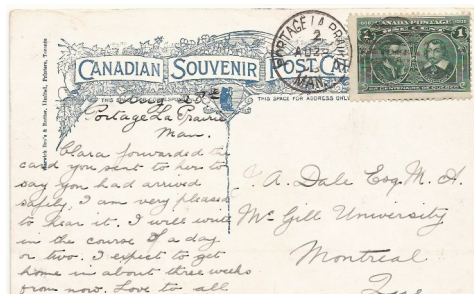 CANADIAN SOUVENIR POST CARD
THIS SPACE FOR ADDRESS ONLY
PORTAGE LA PRAIRIE
MAN.
CANADA POSTAGE
1 1
Warwick Bro's & Rutter, Limited, Printers, Toronto
Portage La Prairie
Man.
Clara forwarded the
card you sent to her to
say you had arrived
safely, I am very pleased
to hear it. I will write
in the course of a day
or two. I expect to get
home in about three weeks
from now. Love to all
A. Dale Esq. M.A.
McGill University
Montreal
Que